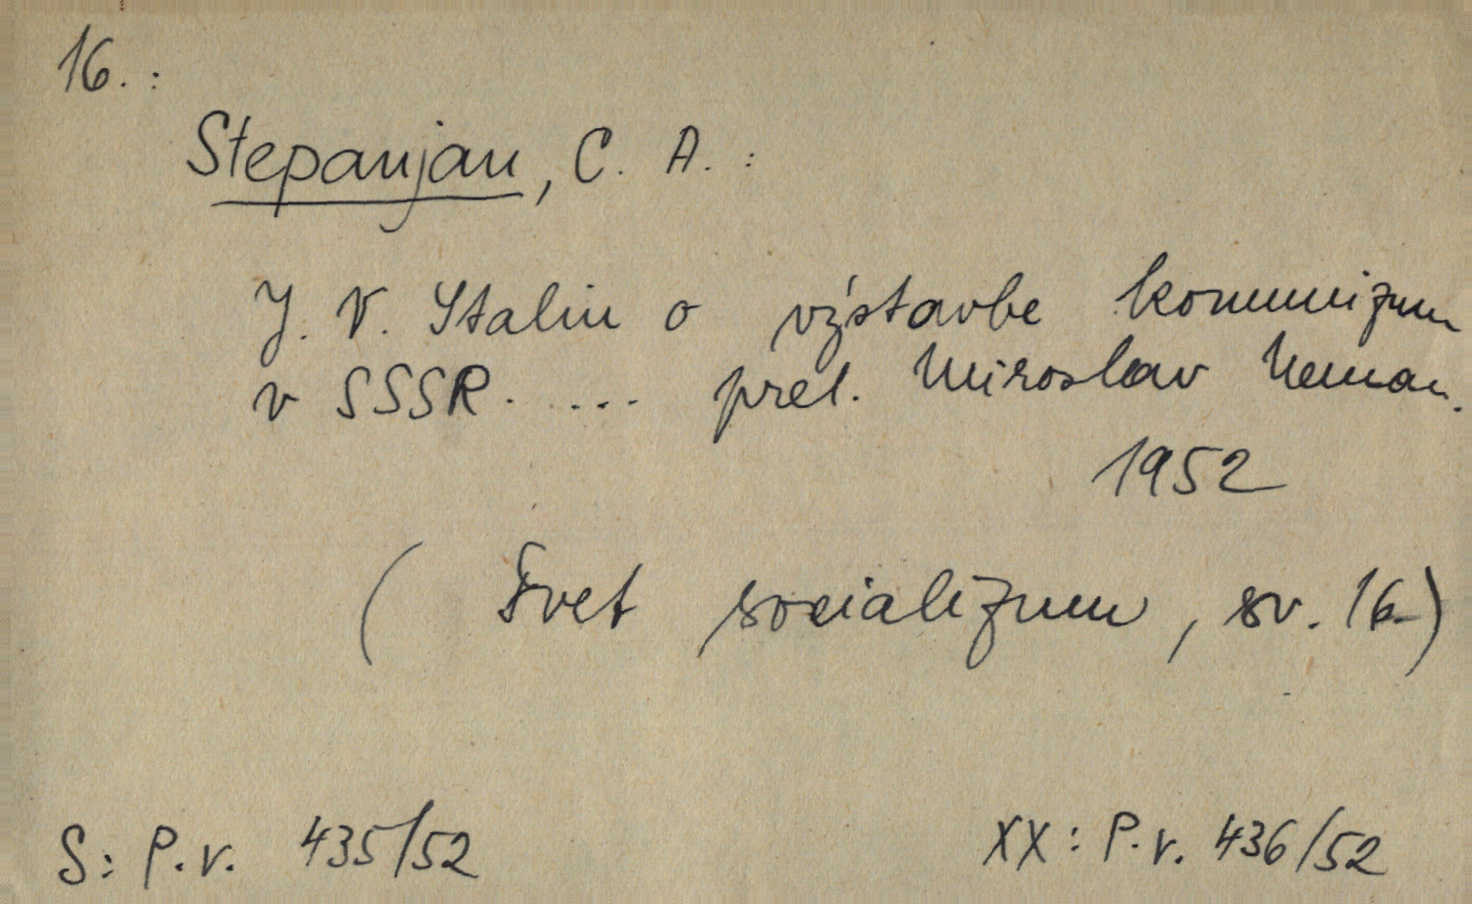 16.:
Stepanjan, C. A.:
J. V. Stalin o výstavbe komunizmu
v SSSR. ... prel. Miroslav Neman.
1952
( Svet socializmu, sv. 16.)
S: P.v. 435/52 XX: P.v. 436/52